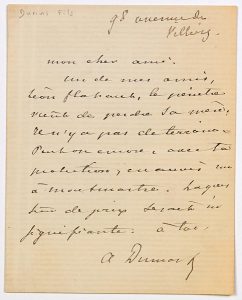 Dumas fils
98 avenue de
Villiers
mon cher ami.
un de mes amis,
Léon Flahaut, le peintre
vient de perdre sa mère.
Il n'y a pas de terrain.
Peut on encore, avec ta
protection, en avoir un
à montmartre. La ques
tion de prix serait in
signifiante. à toi.
A Dumas f